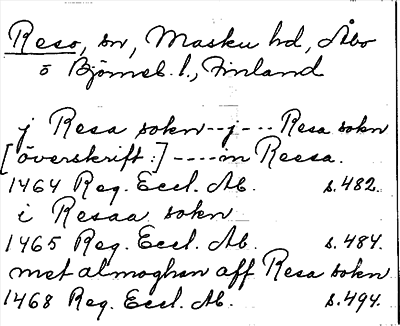 Reso, sn, Masku hd, Åbo
o Björneb. l., Finland
j Resa sokn--j---Resa sokn
[överskrift:]----in Reesa.
1464 Reg. Eccl. Ab. s.482.
i Resaa sokn
1465 Reg. Eccl. Ab. s.484.
met almoghan aff Resa sokn
1468 Reg. Eccl. Ab. s.494.